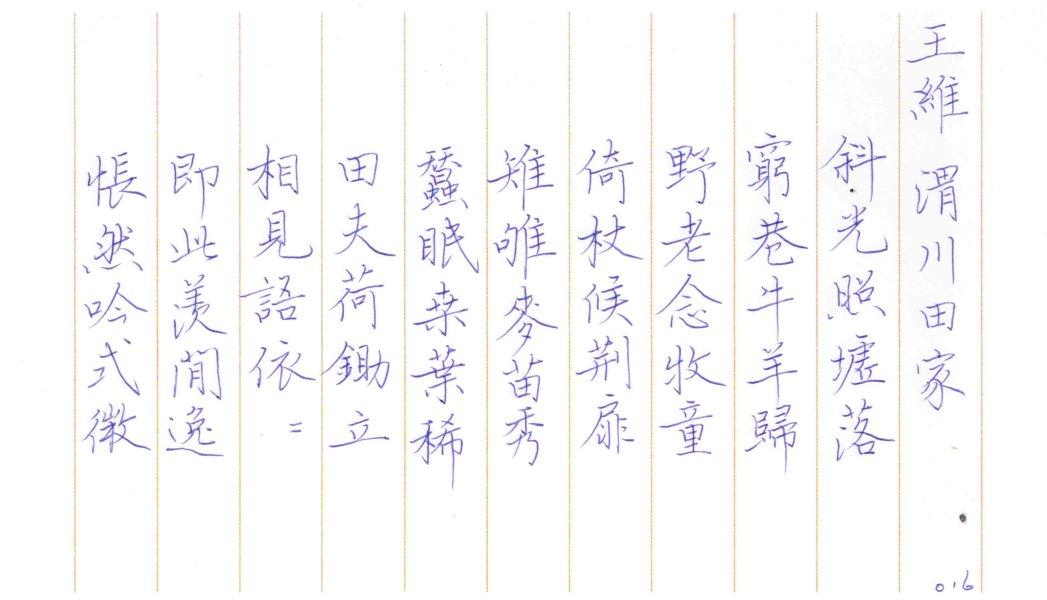 王維 渭川田家
斜光照墟落
窮巷牛羊歸
野老念牧童
倚杖候荆扉
雉唯麥苗秀
蠶眠桒葉稀
田夫荷鋤立
相見語依=
即此羡閒逸
悵然吟式微
016